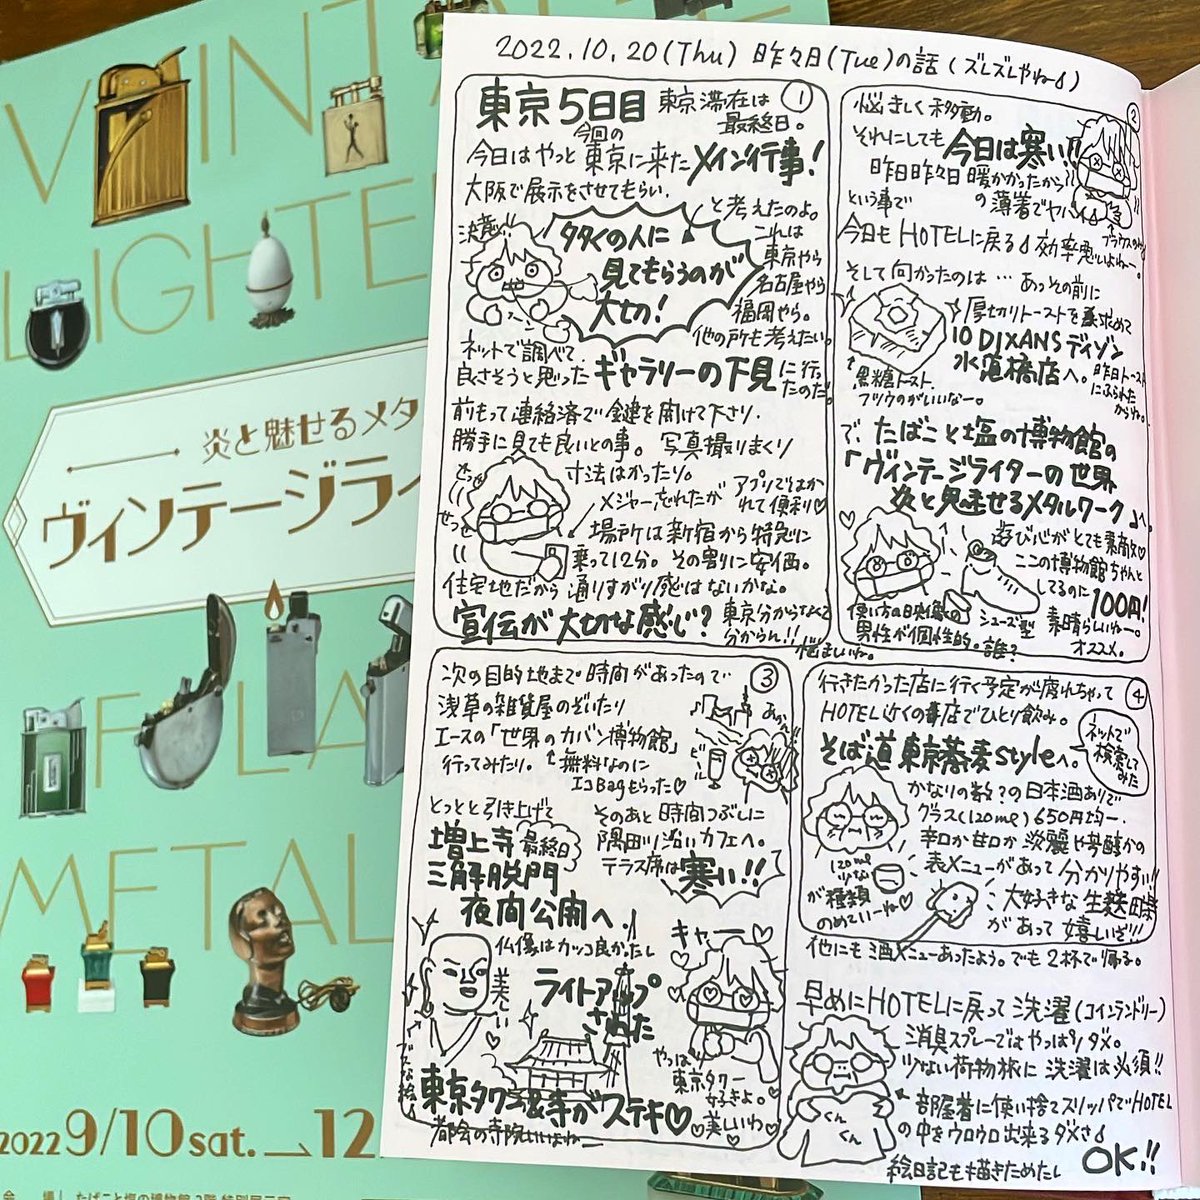 VINT
LIGHTE
炎と魅せるメタ
ヴィンテージライ
FLA
METAL
2022 9/10 sat. → 12
2022.10.20(Thu) 昨々日(Tue)の話(ズレズレやね
①
東京5日目 東京滞在は
最終日。
今日はやっと今回の東京に来たメイン行事!
大阪で展示をさせてもらい、
決意!!
多くの人に
見てもらうのが
大切!
と考えたのよ。
これは
東京やら
名古屋やら
福岡やら。
他の所も考えたい。
ネットで調べて、
良さそうと思ったギャラリーの下見に行っ
たのだ。
前もって連絡済で鍵を開けて下さり、
勝手に見ても良いとの事。写真撮りまくり
寸法はかったり。
メジャー忘れたが アプリではか
れて便利♡
せっせっ
場所は新宿から特急に
乗って12分。その割りに安価。
住宅地だから通りすがり感はないかな。
宣伝が大切な感じ? 東京分からなくて
分からん!!
悩ましいね。
②
悩ましく移動。
それにしても今日は寒い!!
昨日昨々日暖かかったから
という事での薄着でヤバイ
今日もHOTELに戻る 効率悪いよねー。
そして向かったのは…あっその前に
厚切りトーストを求めて
10 DIXANS ディゾン
水道橋店へ。昨日トースト
にふられた
からね。
黒糖トースト。
フツウのがいいなー。
で、たばこと塩の博物館の
「ヴィンテージライターの世界
炎と魅せるメタルワーク」へ。
遊び心がとても素敵♡
ここの博物館ちゃんと
してるのに100円!
素晴らしいねー。
オススメ。
シューズ型
使い方の映像の
男性が個性的。誰?
③
次の目的地まで時間があったので
浅草の雑貨屋のぞいたり
エースの「世界のカバン博物館」
行ってみたり。↑無料なのに
エコBagもらった♡
とっとと引き上げて
そのあと時間つぶしに
隅田川沿いカフェへ。
テラス席は寒い!!
増上寺 最終日
三解脱門
夜間公開へ。
仏像はカッコ良かったし
美しい
ライトアップ
された
東京タワー&寺がステキ♡
都会の寺院いいよねー
キャー
やっぱ
東京タワー
好きよ。
美しいわ
④
行きたかった店に行く予定が崩れちゃって
HOTEL近くの店でひとり飲み。
そば道 東京蕎麦styleへ。
ネットで
検索して
みた
かなりの数?の日本酒ありで
グラス(120ml)650円均一。
辛口か甘口か淡麗や芳醇かの
表メニューがあって分かりやすい!!
120ml
少ない
が種類
のめていーね♡
大好きな生麩田楽
があって嬉しいぜ!!!
他にも酒メニューあったよう。でも2杯で帰る。
早めにHOTELに戻って洗濯(コインランドリー)
消臭スプレーではやっぱりダメ。
少ない荷物旅に洗濯は必須!!
部屋着に使い捨てスリッパでHOTEL
の中をウロウロ出来るダメさ
くんくん
絵日記も描きためたし OK!!